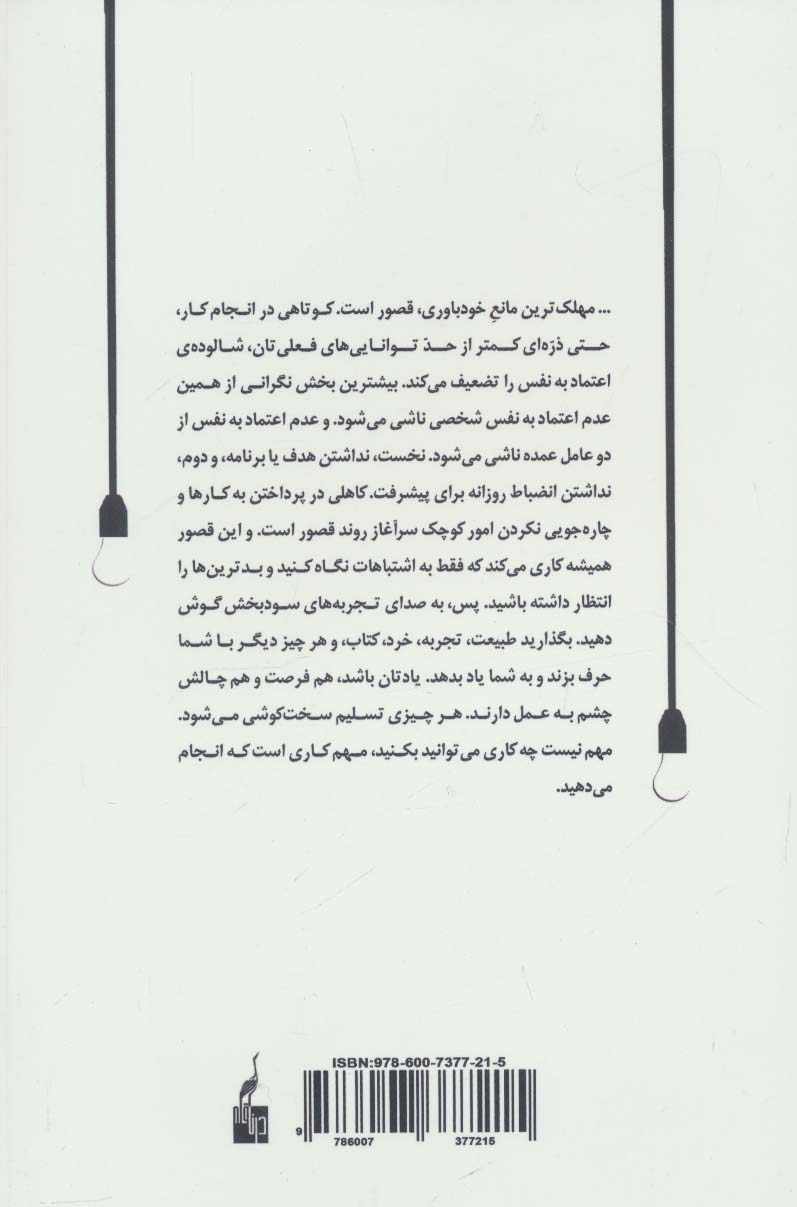 ... مهلک‌ترین مانعِ خودباوری، قصور است. کوتاهی در انجام کار،
حتی ذرّه‌ای کمتر از حدّ توانایی‌های فعلی‌تان، شالوده‌ی
اعتماد به نفس را تضعیف می‌کند. بیشترین بخش نگرانی از همین
عدم اعتماد به نفس شخصی ناشی می‌شود. و عدم اعتماد به نفس از
دو عامل عمده ناشی می‌شود. نخست، نداشتن هدف یا برنامه، و دوم،
نداشتن انضباط روزانه برای پیشرفت. کاهلی در پرداختن به کارها و
چاره‌جویی نکردن امور کوچک سرآغاز روند قصور است. و این قصور
همیشه کاری می‌کند که فقط به اشتباهات نگاه کنید و بدترین‌ها را
انتظار داشته باشید. پس، به صدای تجربه‌های سودبخش گوش
دهید. بگذارید طبیعت، تجربه، خرد، کتاب، و هر چیز دیگر با شما
حرف بزند و به شما یاد بدهد. یادتان باشد، هم فرصت و هم چالش
چشم به عمل دارند. هر چیزی تسلیم سخت‌کوشی می‌شود.
مهم نیست چه کاری می‌توانید بکنید، مهم کاری است که انجام
می‌دهید.
ISBN:978-600-7377-21-5
9 786007 377215